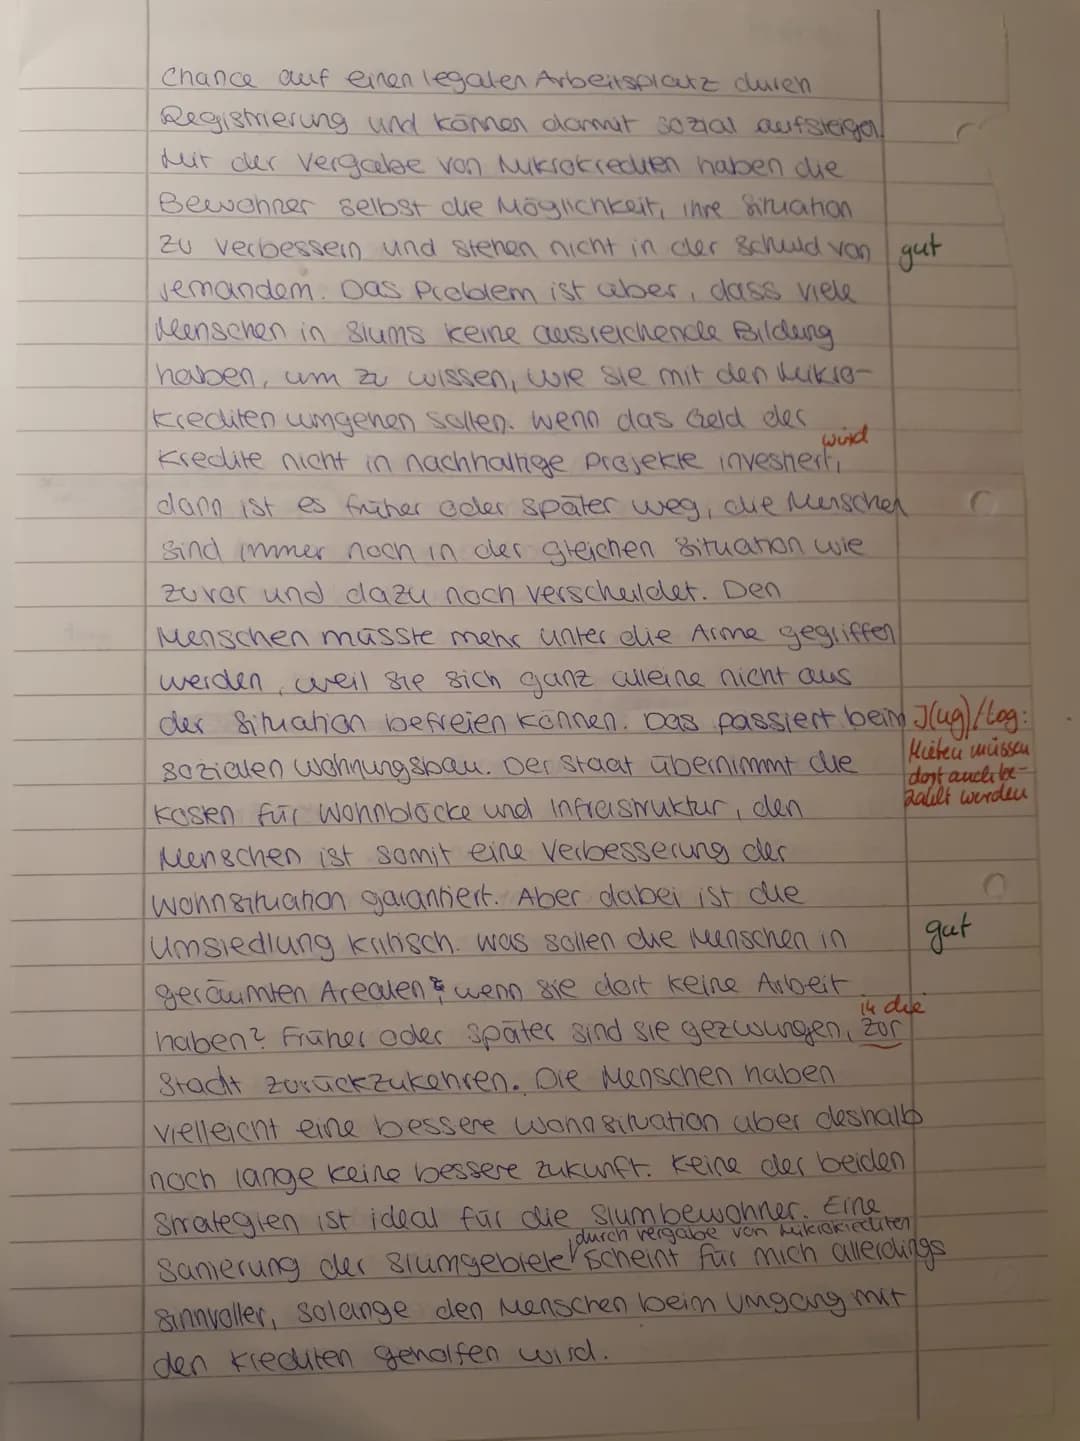 Chance auf einen legalen Arbeitsplatz durch
Registrierung und können damit sozial aufsteigen.
Mit der Vergabe von Mikrokrediten haben die
Bewohner selbst die Möglichkeit, ihre Situation
zu verbessern und stehen nicht in der Schuld von
gut
jemandem. Das Problem ist aber, dass viele
Menschen in Slums keine ausreichende Bildung
haben, um zu wissen, wie sie mit den Mikro-
krediten umgehen sollen. Wenn das Geld der
wird
Kredite nicht in nachhaltige Projekte investiert,
dann ist es früher oder später weg, die Menschen
sind immer noch in der gleichen Situation wie
zuvor und dazu noch verschuldet. Den
Menschen müsste mehr unter die Arme gegriffen
werden, weil sie sich ganz alleine nicht aus
der Situation befreien können. Das passiert beim
J(ug)/Log:
Mieten müssen
dort auch be-
zahlt werden
sozialen Wohnungsbau. Der Staat übernimmt die
Kosten für Wohnblöcke und Infrastruktur, den
Menschen ist somit eine Verbesserung der
Wohnsituation garantiert. Aber dabei ist die
Umsiedlung kritisch. Was sollen die Menschen in
gut
geräumten Arealen, wenn sie dort keine Arbeit
in die
haben? Früher oder später sind sie gezwungen, zur
Stadt zurückzukehren. Die Menschen haben
vielleicht eine bessere Wohnsituation aber deshalb
noch lange keine bessere Zukunft. Keine der beiden
Strategien ist ideal für die Slumbewohner. Eine
durch Vergabe von Mikrokrediten
Sanierung der Slumgebiete scheint für mich allerdings
sinnvoller, solange den Menschen beim Umgang mit
den Krediten geholfen wird.